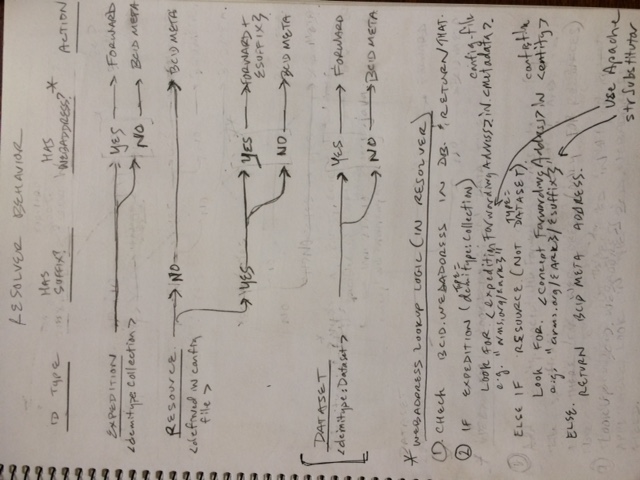 RESOLVER BEHAVIOR
ID TYPE HAS SUFFIX? HAS WEBADDRESS?* ACTION
EXPEDITION YES FORWARD
<dcmitype:Collection> NO BCID META
RESOURCE NO BCID META
<defined in config
file>
YES YES FORWARD +
{SUFFIX}
NO BCID META
DATASET
<dcmitype:Dataset> YES FORWARD
NO BCID META
* WEBADDRESS LOOKUP LOGIC (IN RESOLVER)
① CHECK BCID.WEBADDRESS IN DB. RETURN THAT.
② IF EXPEDITION (TYPE= dcmitype:Collection) config-file
LOOK FOR <expeditionForwardingAddress> IN <metadata>.
e.g. "arms.org/{ark}"
ELSE IF RESOURCE (NOT TYPE= DATASET). config file
LOOK FOR <conceptForwardingAddress> IN <entity>
e.g. "arms.org/{ARK}/{suffix}"
ELSE.
RETURN BCID META ADDRESS.
USE Apache
strSubstitutor